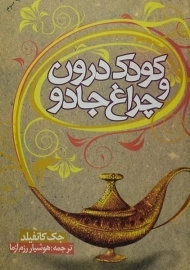 کودک درون
و
چراغ جادو
جک کانفیلد
ترجمه: هوشیار رزم آزما